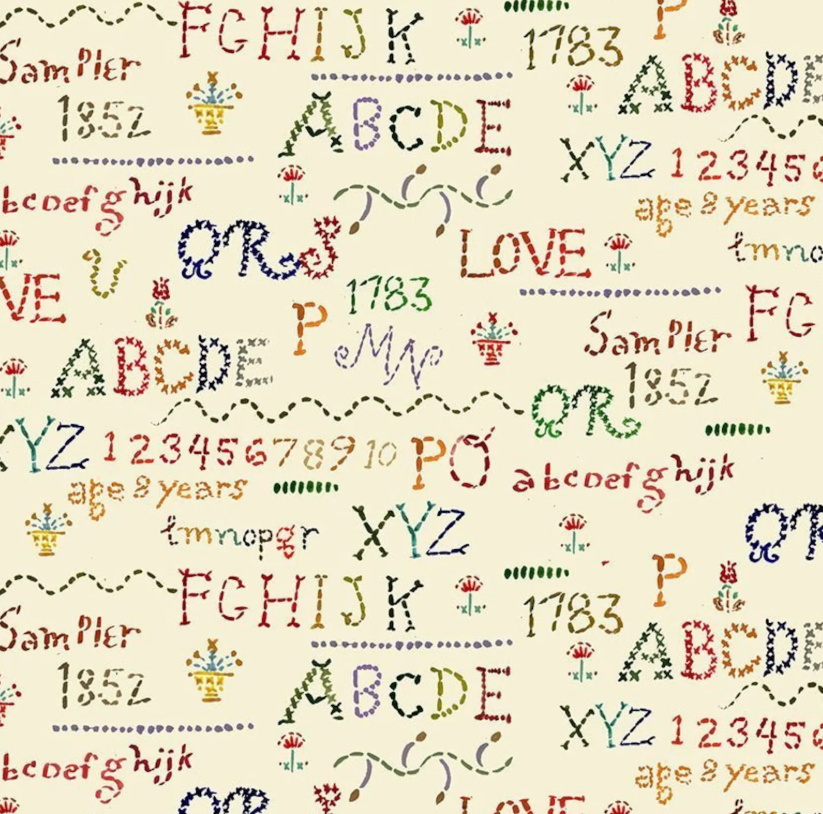 FGHIJK
P
1783
Sampler
ABCDE
1852
ABCDE
XYZ 123456
bcdefghijk
age 8 years
QRS
LOVE
lmno
VE
U
1783
FG
P
MN
Sampler
ABCDE
1852
QR
YZ 12345678910
PO
abcdefghijk
age 8 years
lmnopqr
XYZ
QR
P
FGHIJK
1783
Sampler
ABCDE
1852
ABCDE
XYZ 123456
bcdefghijk
age 8 years
QR
LOVE